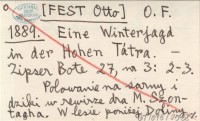 [FEST Otto] O. F.
1889. Eine Winterjagd
in der Hohen Tátra. –
Zipser Bote 27, na 3: 2-3.
Polowanie na sarny i
dziki w rewirze dra M. Szon-
tagha. W lesie poniżej Doliny